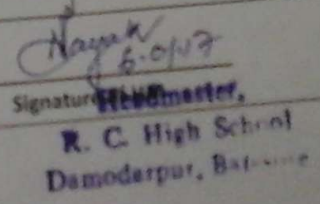 Nayak
Signature Headmaster,
R. C. High School
Damodarpur,